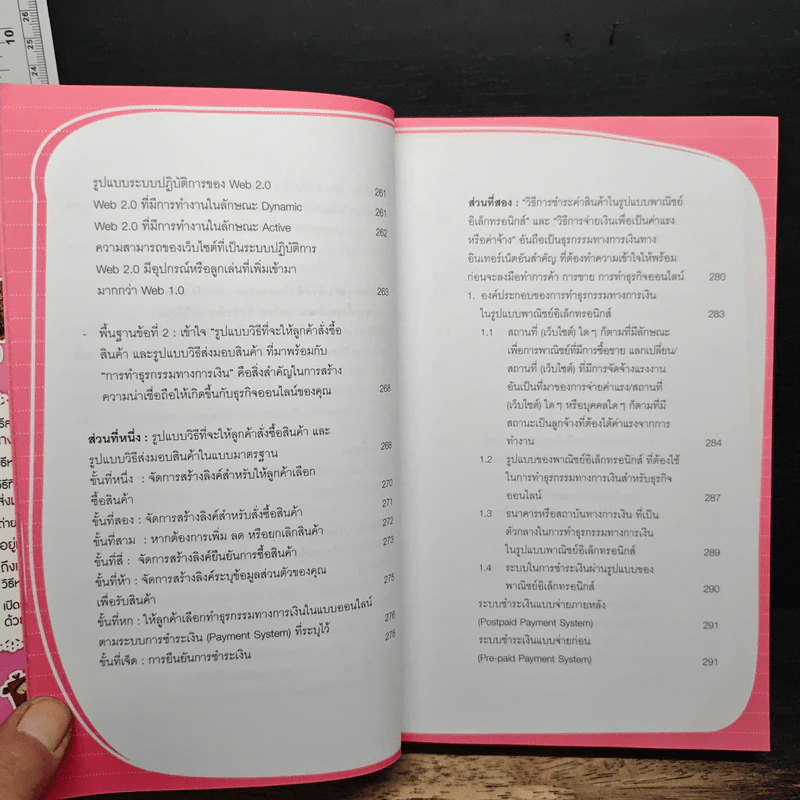 รูปแบบระบบปฏิบัติการของ Web 2.0 261
Web 2.0 ที่มีการทำงานในลักษณะ Dynamic 261
Web 2.0 ที่มีการทำงานในลักษณะ Active 262
ความสามารถของเว็บไซต์ที่เป็นระบบปฏิบัติการ
Web 2.0 มีอุปกรณ์หรือลูกเล่นที่เพิ่มเข้ามา
มากกว่า Web 1.0 263
- พื้นฐานข้อที่ 2 : เข้าใจ "รูปแบบวิธีที่จะให้ลูกค้าสั่งซื้อ
สินค้า และรูปแบบวิธีส่งมอบสินค้า ที่มาพร้อมกับ
"การทำธุรกรรมทางการเงิน" คือสิ่งสำคัญในการสร้าง
ความน่าเชื่อถือให้เกิดขึ้นกับธุรกิจออนไลน์ของคุณ 268
ส่วนที่หนึ่ง : รูปแบบวิธีที่จะให้ลูกค้าสั่งซื้อสินค้า และ
รูปแบบวิธีส่งมอบสินค้าในแบบมาตรฐาน 268
ขั้นที่หนึ่ง : จัดการสร้างลิงค์สำหรับให้ลูกค้าเลือก
ซื้อสินค้า 270
ขั้นที่สอง : จัดการสร้างลิงค์สำหรับสั่งซื้อสินค้า 271
ขั้นที่สาม : หากต้องการเพิ่ม ลด หรือยกเลิกสินค้า 272
ขั้นที่สี่ : จัดการสร้างลิงค์ยืนยันการซื้อสินค้า 273
ขั้นที่ห้า : จัดการสร้างลิงค์ระบุข้อมูลส่วนตัวของคุณ
เพื่อรับสินค้า 275
ขั้นที่หก : ให้ลูกค้าเลือกทำธุรกรรมทางการเงินในแบบออนไลน์
ตามระบบการชำระเงิน (Payment System) ที่ระบุไว้ 276
ขั้นที่เจ็ด : การยืนยันการชำระเงิน 278
ส่วนที่สอง : "วิธีการชำระค่าสินค้าในรูปแบบพาณิชย์
อิเล็กทรอนิกส์" และ "วิธีการจ่ายเงินเพื่อเป็นค่าแรง
หรือค่าจ้าง" อันถือเป็นธุรกรรมทางการเงินทาง
อินเทอร์เน็ตอันสำคัญ ที่ต้องทำความเข้าใจให้พร้อม
ก่อนจะลงมือทำการค้า การขาย การทำธุรกิจออนไลน์ 280
1. องค์ประกอบของการทำธุรกรรมทางการเงิน
ในรูปแบบพาณิชย์อิเล็กทรอนิกส์ 283
1.1 สถานที่ (เว็บไซต์) ใด ๆ ก็ตามที่มีลักษณะ
เพื่อการพาณิชย์ที่มีการซื้อขาย แลกเปลี่ยน/
สถานที่ (เว็บไซต์) ที่มีการจัดจ้างแรงงาน
อันเป็นที่มาของการจ่ายค่าแรง/สถานที่
(เว็บไซต์) ใด ๆ หรือบุคคลใดๆ ก็ตามที่มี
สถานะเป็นลูกจ้างที่ต้องได้ค่าแรงจากการ
ทำงาน 284
1.2 รูปแบบของพาณิชย์อิเล็กทรอนิกส์ ที่ต้องใช้
ในการทำธุรกรรมทางการเงินสำหรับธุรกิจ
ออนไลน์ 287
1.3 ธนาคารหรือสถาบันทางการเงิน ที่เป็น
ตัวกลางในการทำธุรกรรมทางการเงิน
ในรูปแบบพาณิชย์อิเล็กทรอนิกส์ 289
1.4 ระบบในการชำระเงินผ่านรูปแบบของ
พาณิชย์อิเล็กทรอนิกส์ 290
ระบบชำระเงินแบบจ่ายภายหลัง
(Postpaid Payment System) 291
ระบบชำระเงินแบบจ่ายก่อน
(Pre-paid Payment System) 291